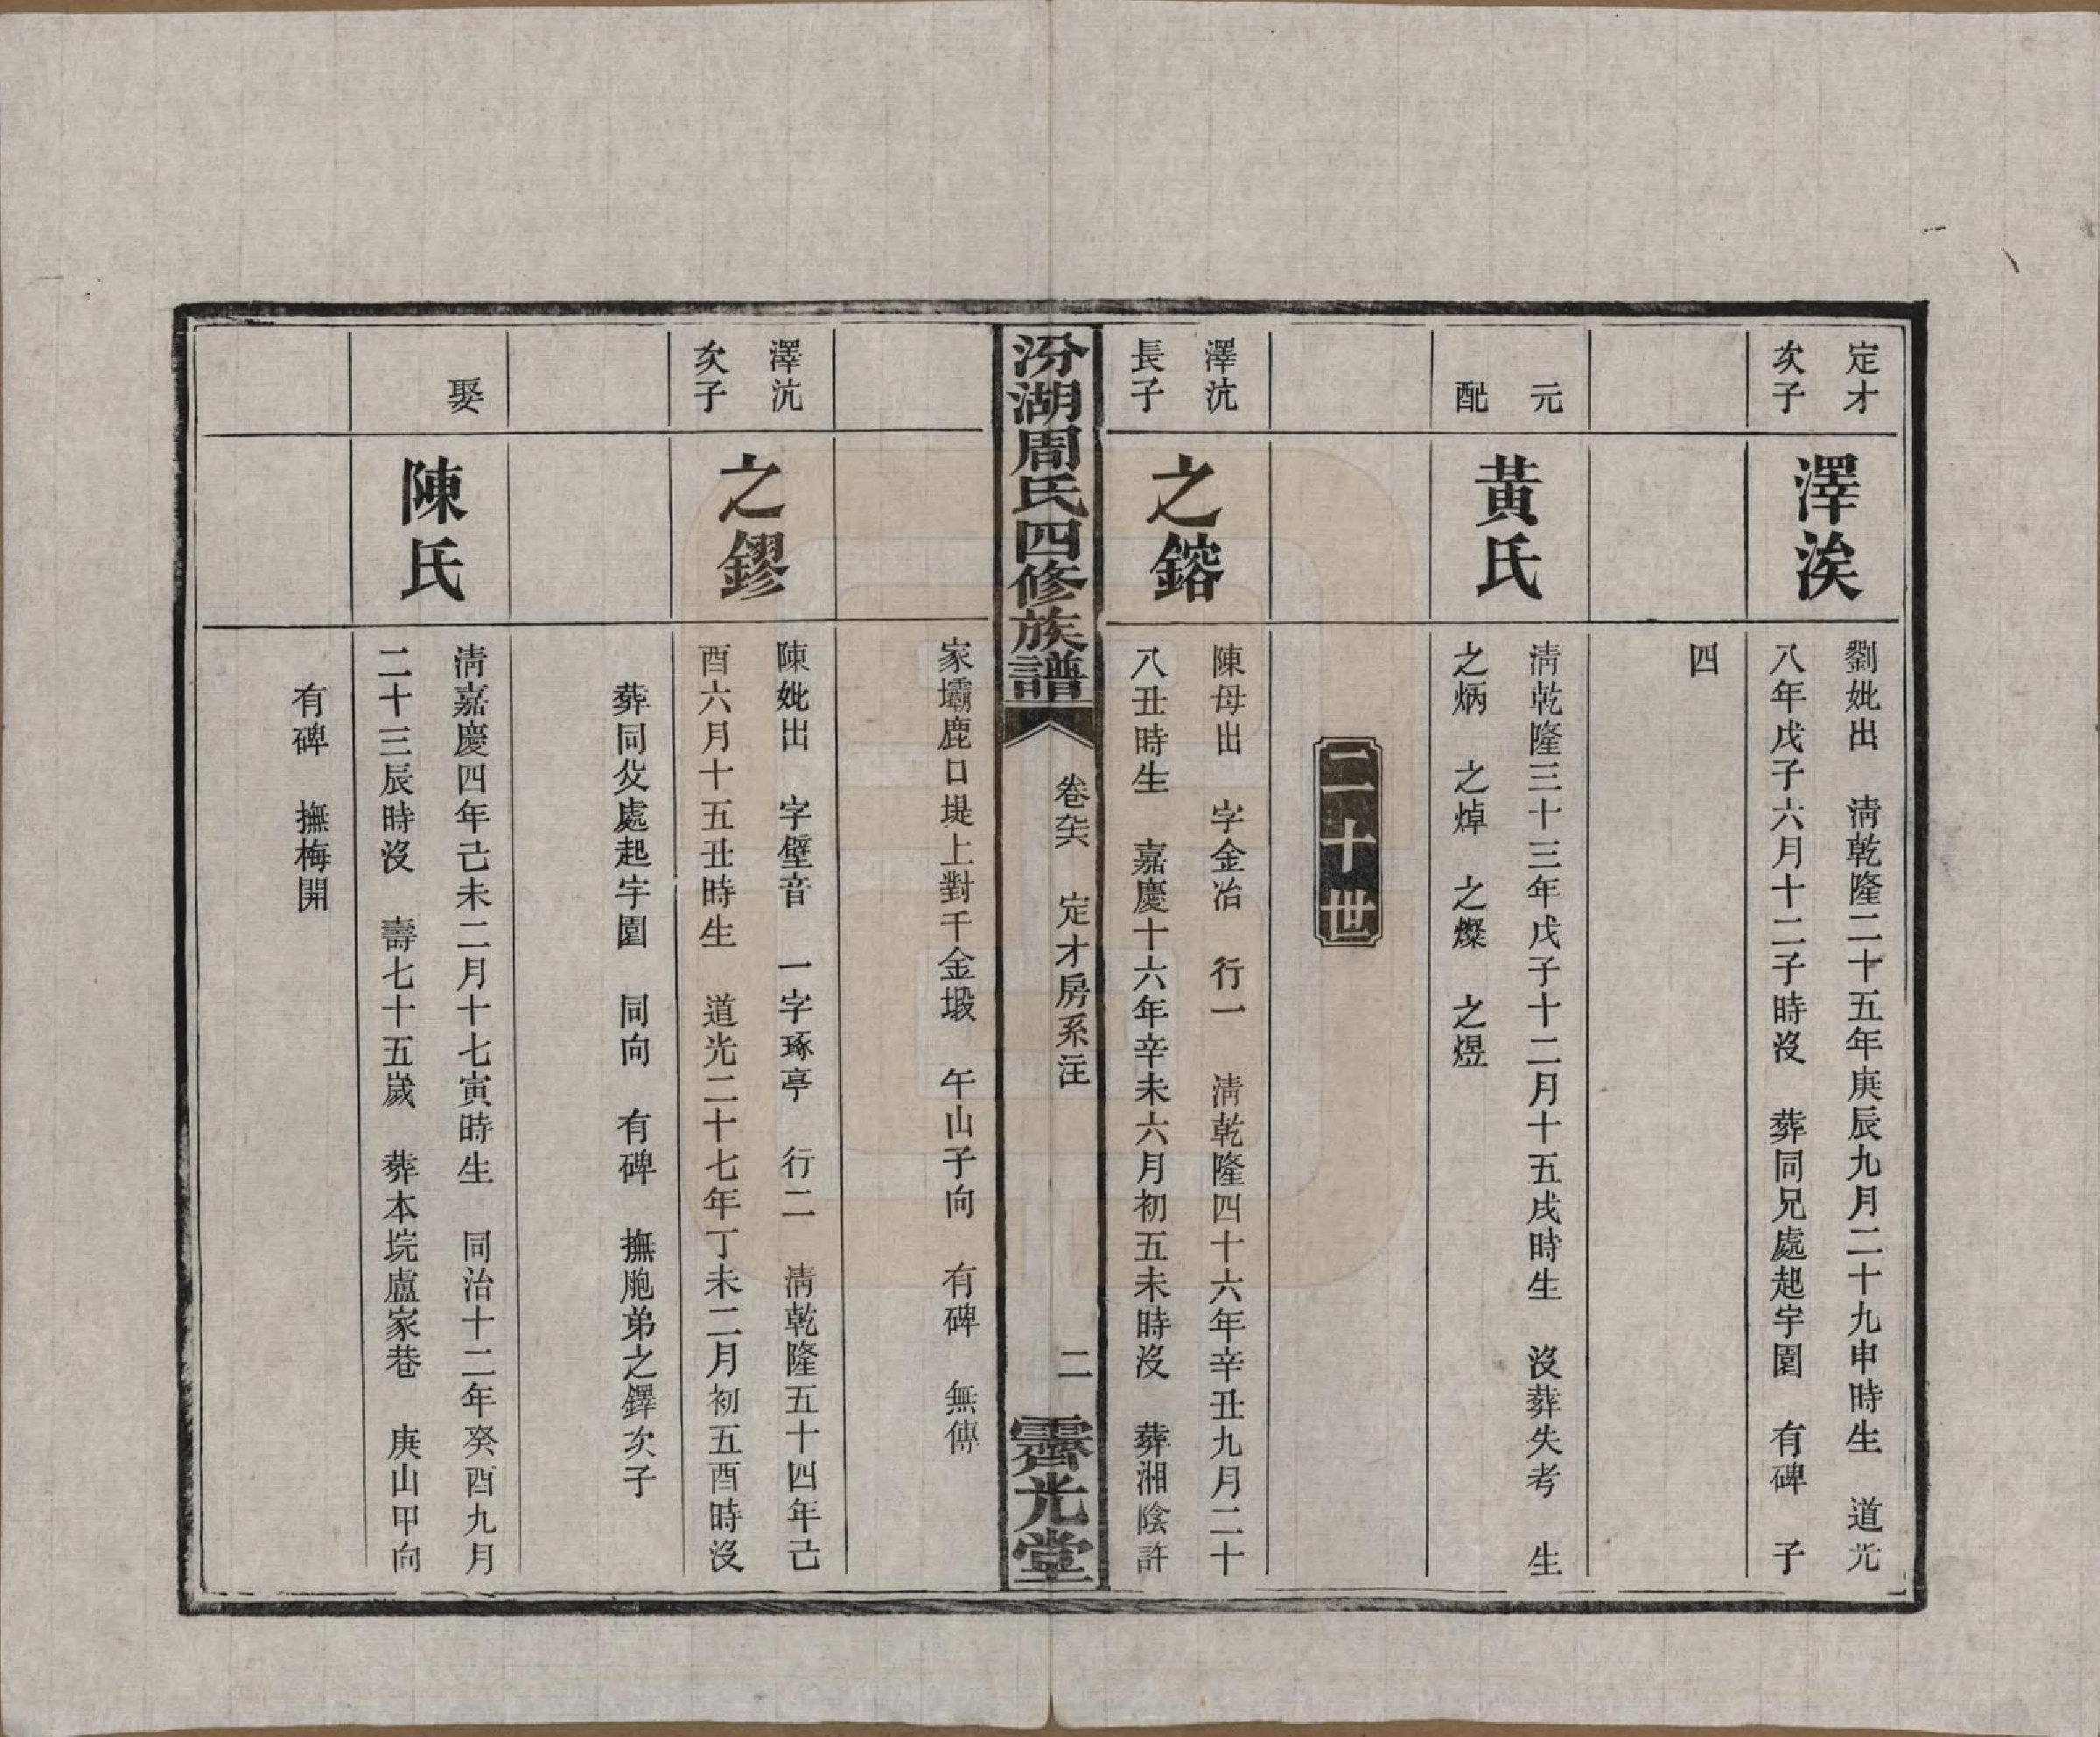 定才
次子
澤涘
劉妣出 淸乾隆二十五年庚辰九月二十九申時生 道光
八年戊子六月十二子時沒 葬同兄處起宇園 有碑 子
四
元
配
黃氏
淸乾隆三十三年戊子十二月十五戌時生 沒葬失考 生
之炳 之焯 之燦 之煜
二十世
澤沆
長子
之鎔
陳母出 字金冶 行一 淸乾隆四十六年辛丑九月二十
八丑時生 嘉慶十六年辛未六月初五未時沒 葬湘陰許
汾湖周氏四修族譜
卷六 定才房系注
二
霽光堂
家壩鹿口堤上對千金塅 午山子向 有碑 無傳
澤沆
次子
之鏐
陳妣出 字璧音 一字琢亭 行二 淸乾隆五十四年己
酉六月十五丑時生 道光二十七年丁未二月初五酉時沒
葬同父處起宇園 同向 有碑 撫胞弟之鐸次子
娶
陳氏
淸嘉慶四年己未二月十七寅時生 同治十二年癸酉九月
二十三辰時沒 壽七十五歲 葬本垸盧家巷 庚山甲向
有碑 撫梅開